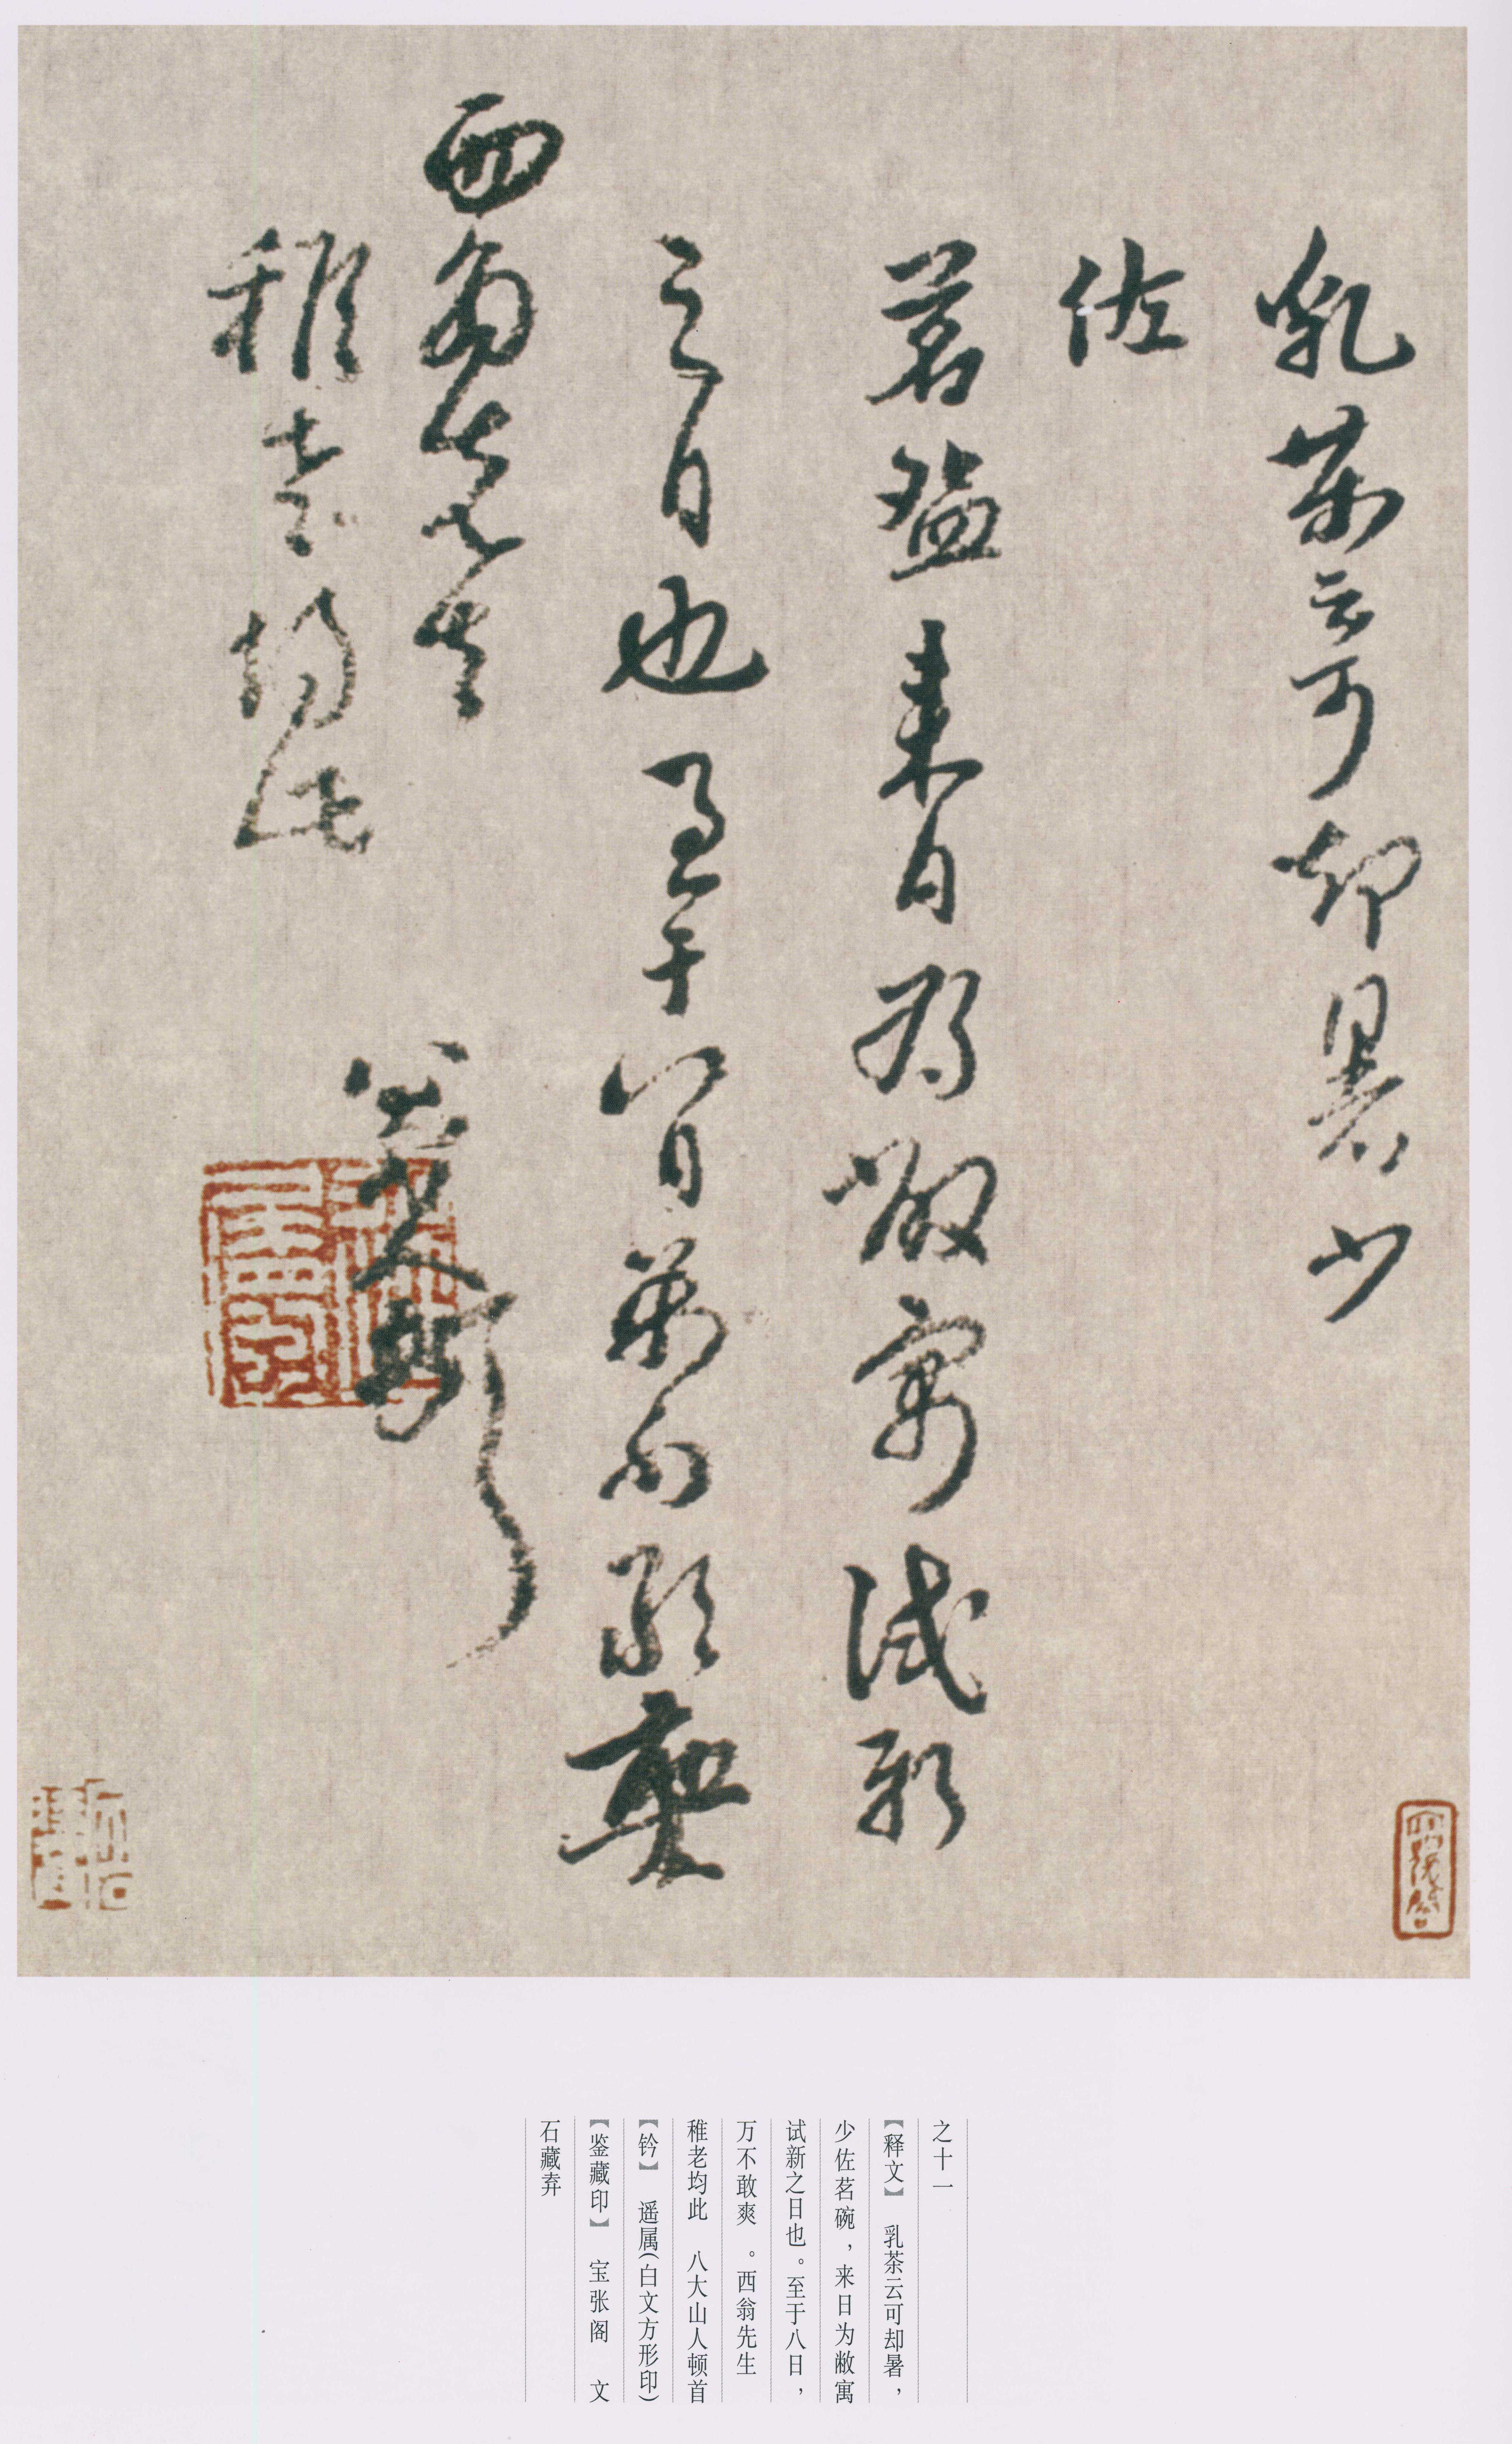 乳茶云可却暑少
佐
茗碗来日为敝寓试新
之日也至于八日万不敢爽
西翁先生
稚老均此
八大山人顿首
之十一
【释文】 乳茶云可却暑，
少佐茗碗，来日为敝寓
试新之日也。至于八日，
万不敢爽。西翁先生
稚老均此 八大山人顿首
【钤】 遥属（白文方形印）
【鉴藏印】 宝张阁 文
石藏弆